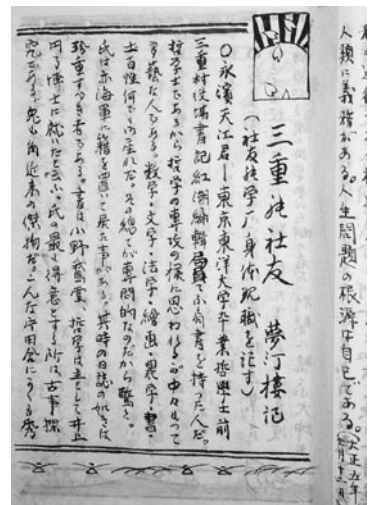 人類に義務がある。人生問題の根源は自己である。(大正五年
三重純社友 夢汀楼記
(社友純学厂身体現職を記す)
〇永濱天江君―東京東洋大学卒業哲学士前
三重村役場書記紅潮編輯局員てふ肩書を持つた人だ。
哲学士であるから哲学の専攻の様に思われるが中々もつて
多藝な人である。数学・文学・法学・繪画・農学・書・
士百姓何でも御座れだ。その総てが専門的なのだから驚く。
氏は亦海軍に籍を置て居た事がある。其時の日誌の如きは
珍重すべき者である。書は小野鵞堂、哲学は主として井上
円了博士に就いたと云ふ。氏の最も得意とする所は古事探
究である。兎も角近来の傑物だ。こんな片田舎にかくも秀